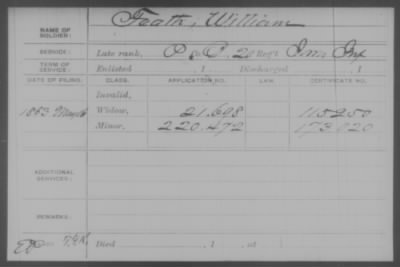 NAME OF SOLDIER: Feath, William
SERVICE: Late rank, P Co. 20 Reg't Inf
TERM OF SERVICE: Enlisted , 1 Discharged , 1
DATE OF FILING. CLASS. APPLICATION NO. LAW. CERTIFICATE NO.
Invalid,
1863 May Widow, 21,698 115250
Minor, 220,472 173,020
ADDITIONAL SERVICES:
REMARKS:
Died , 1 , at